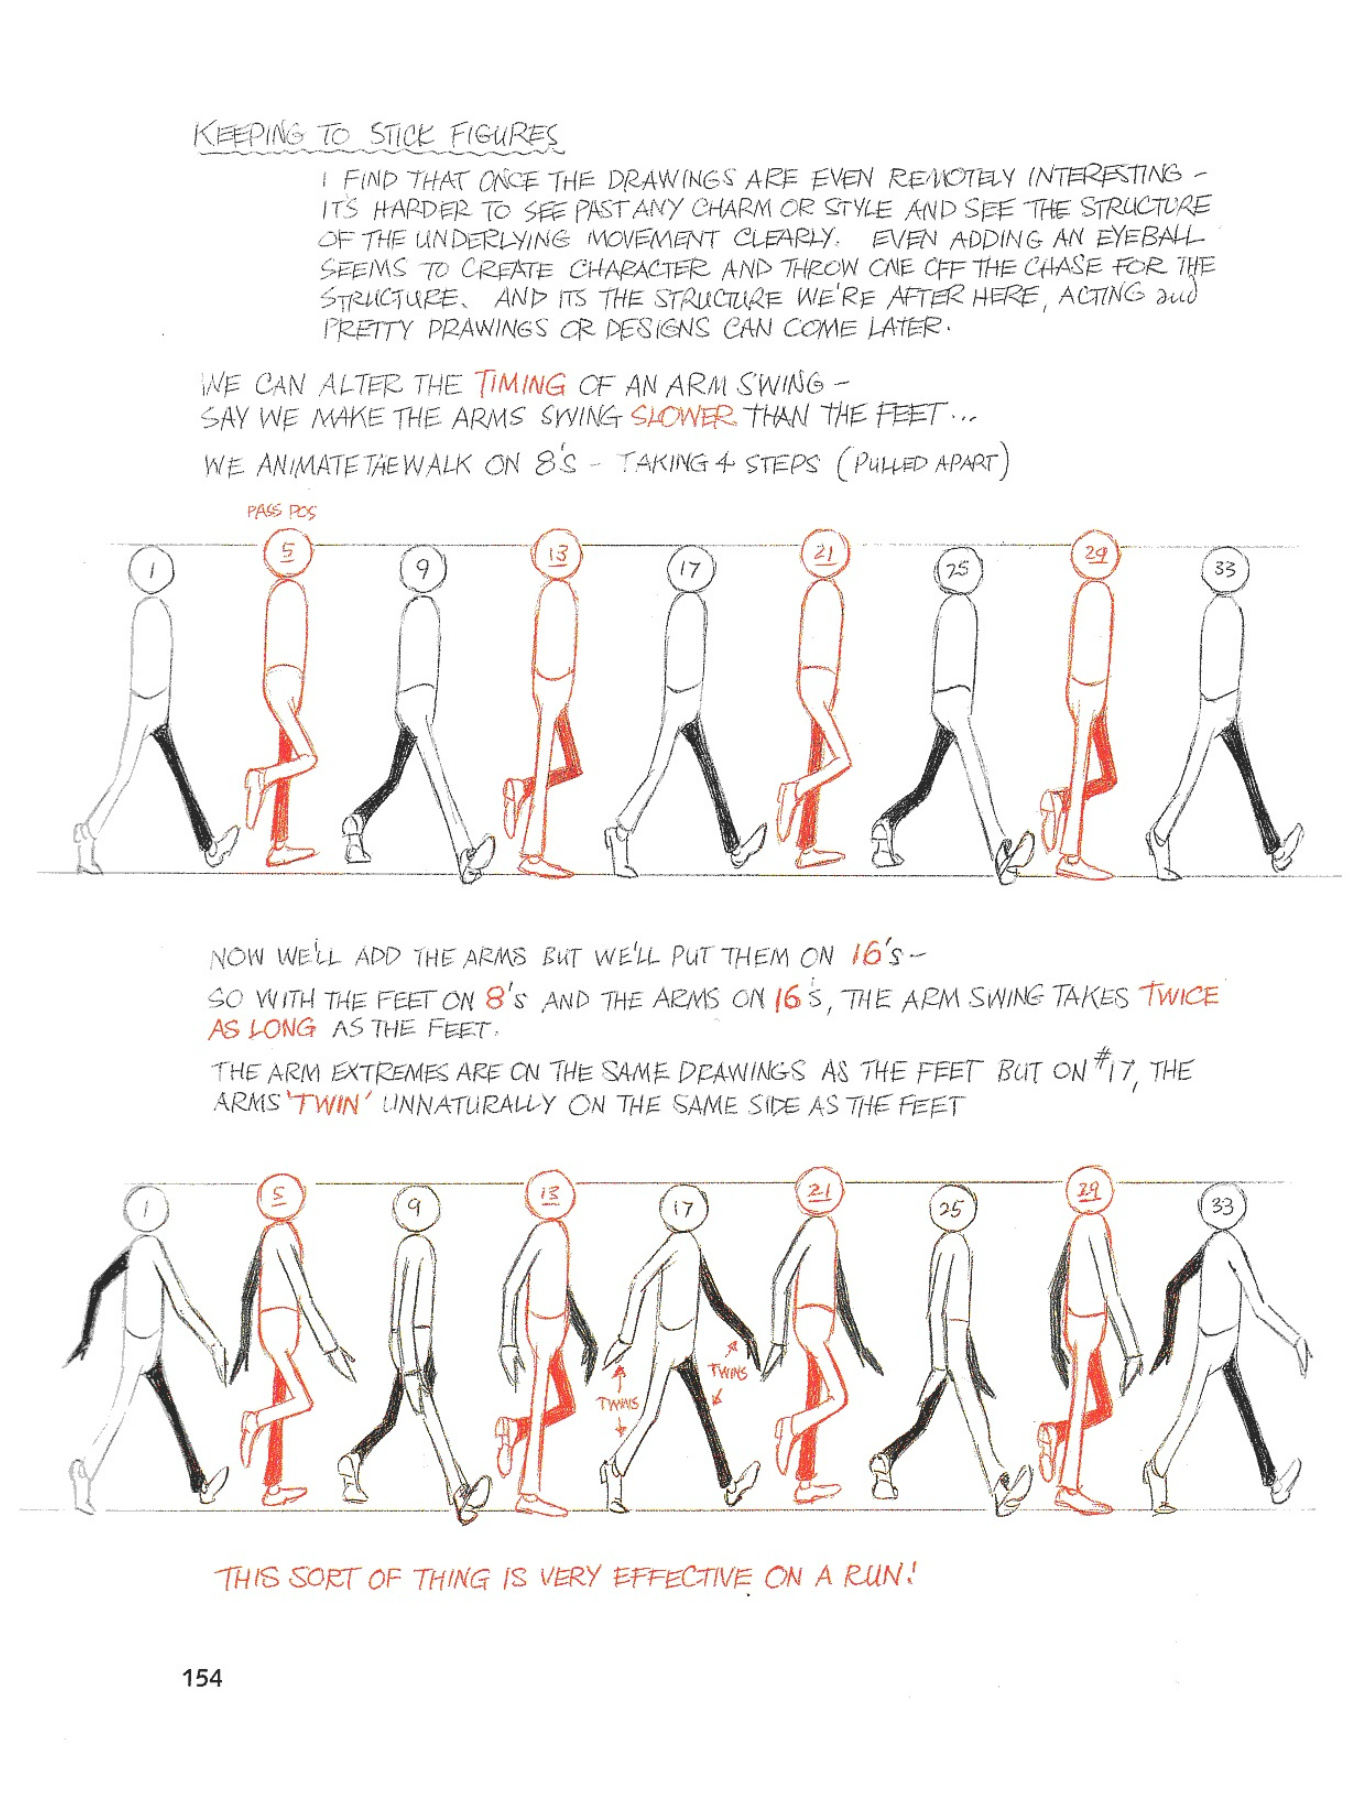 KEEPING TO STICK FIGURES
I FIND THAT ONCE THE DRAWINGS ARE EVEN REMOTELY INTERESTING –
ITS HARDER TO SEE PAST ANY CHARM OR STYLE AND SEE THE STRUCTURE
OF THE UNDERLYING MOVEMENT CLEARLY. EVEN ADDING AN EYEBALL
SEEMS TO CREATE CHARACTER AND THROW ONE OFF THE CHASE FOR THE
STRUCTURE. AND ITS THE STRUCTURE WE'RE AFTER HERE, ACTING and
PRETTY DRAWINGS OR DESIGNS CAN COME LATER.
WE CAN ALTER THE TIMING OF AN ARM SWING –
SAY WE MAKE THE ARMS SWING SLOWER THAN THE FEET...
WE ANIMATE THE WALK ON 8'S – TAKING 4 STEPS (PULLED APART)
PASS POS
1 5 9 13 17 21 25 29 33
NOW WE'LL ADD THE ARMS BUT WE'LL PUT THEM ON 16'S –
SO WITH THE FEET ON 8'S AND THE ARMS ON 16'S, THE ARM SWING TAKES TWICE
AS LONG AS THE FEET.
THE ARM EXTREMES ARE ON THE SAME DRAWINGS AS THE FEET BUT ON #17, THE
ARMS 'TWIN' UNNATURALLY ON THE SAME SIDE AS THE FEET
1 5 9 13 17 21 25 29 33
TWINS
TWINS
THIS SORT OF THING IS VERY EFFECTIVE ON A RUN!
154